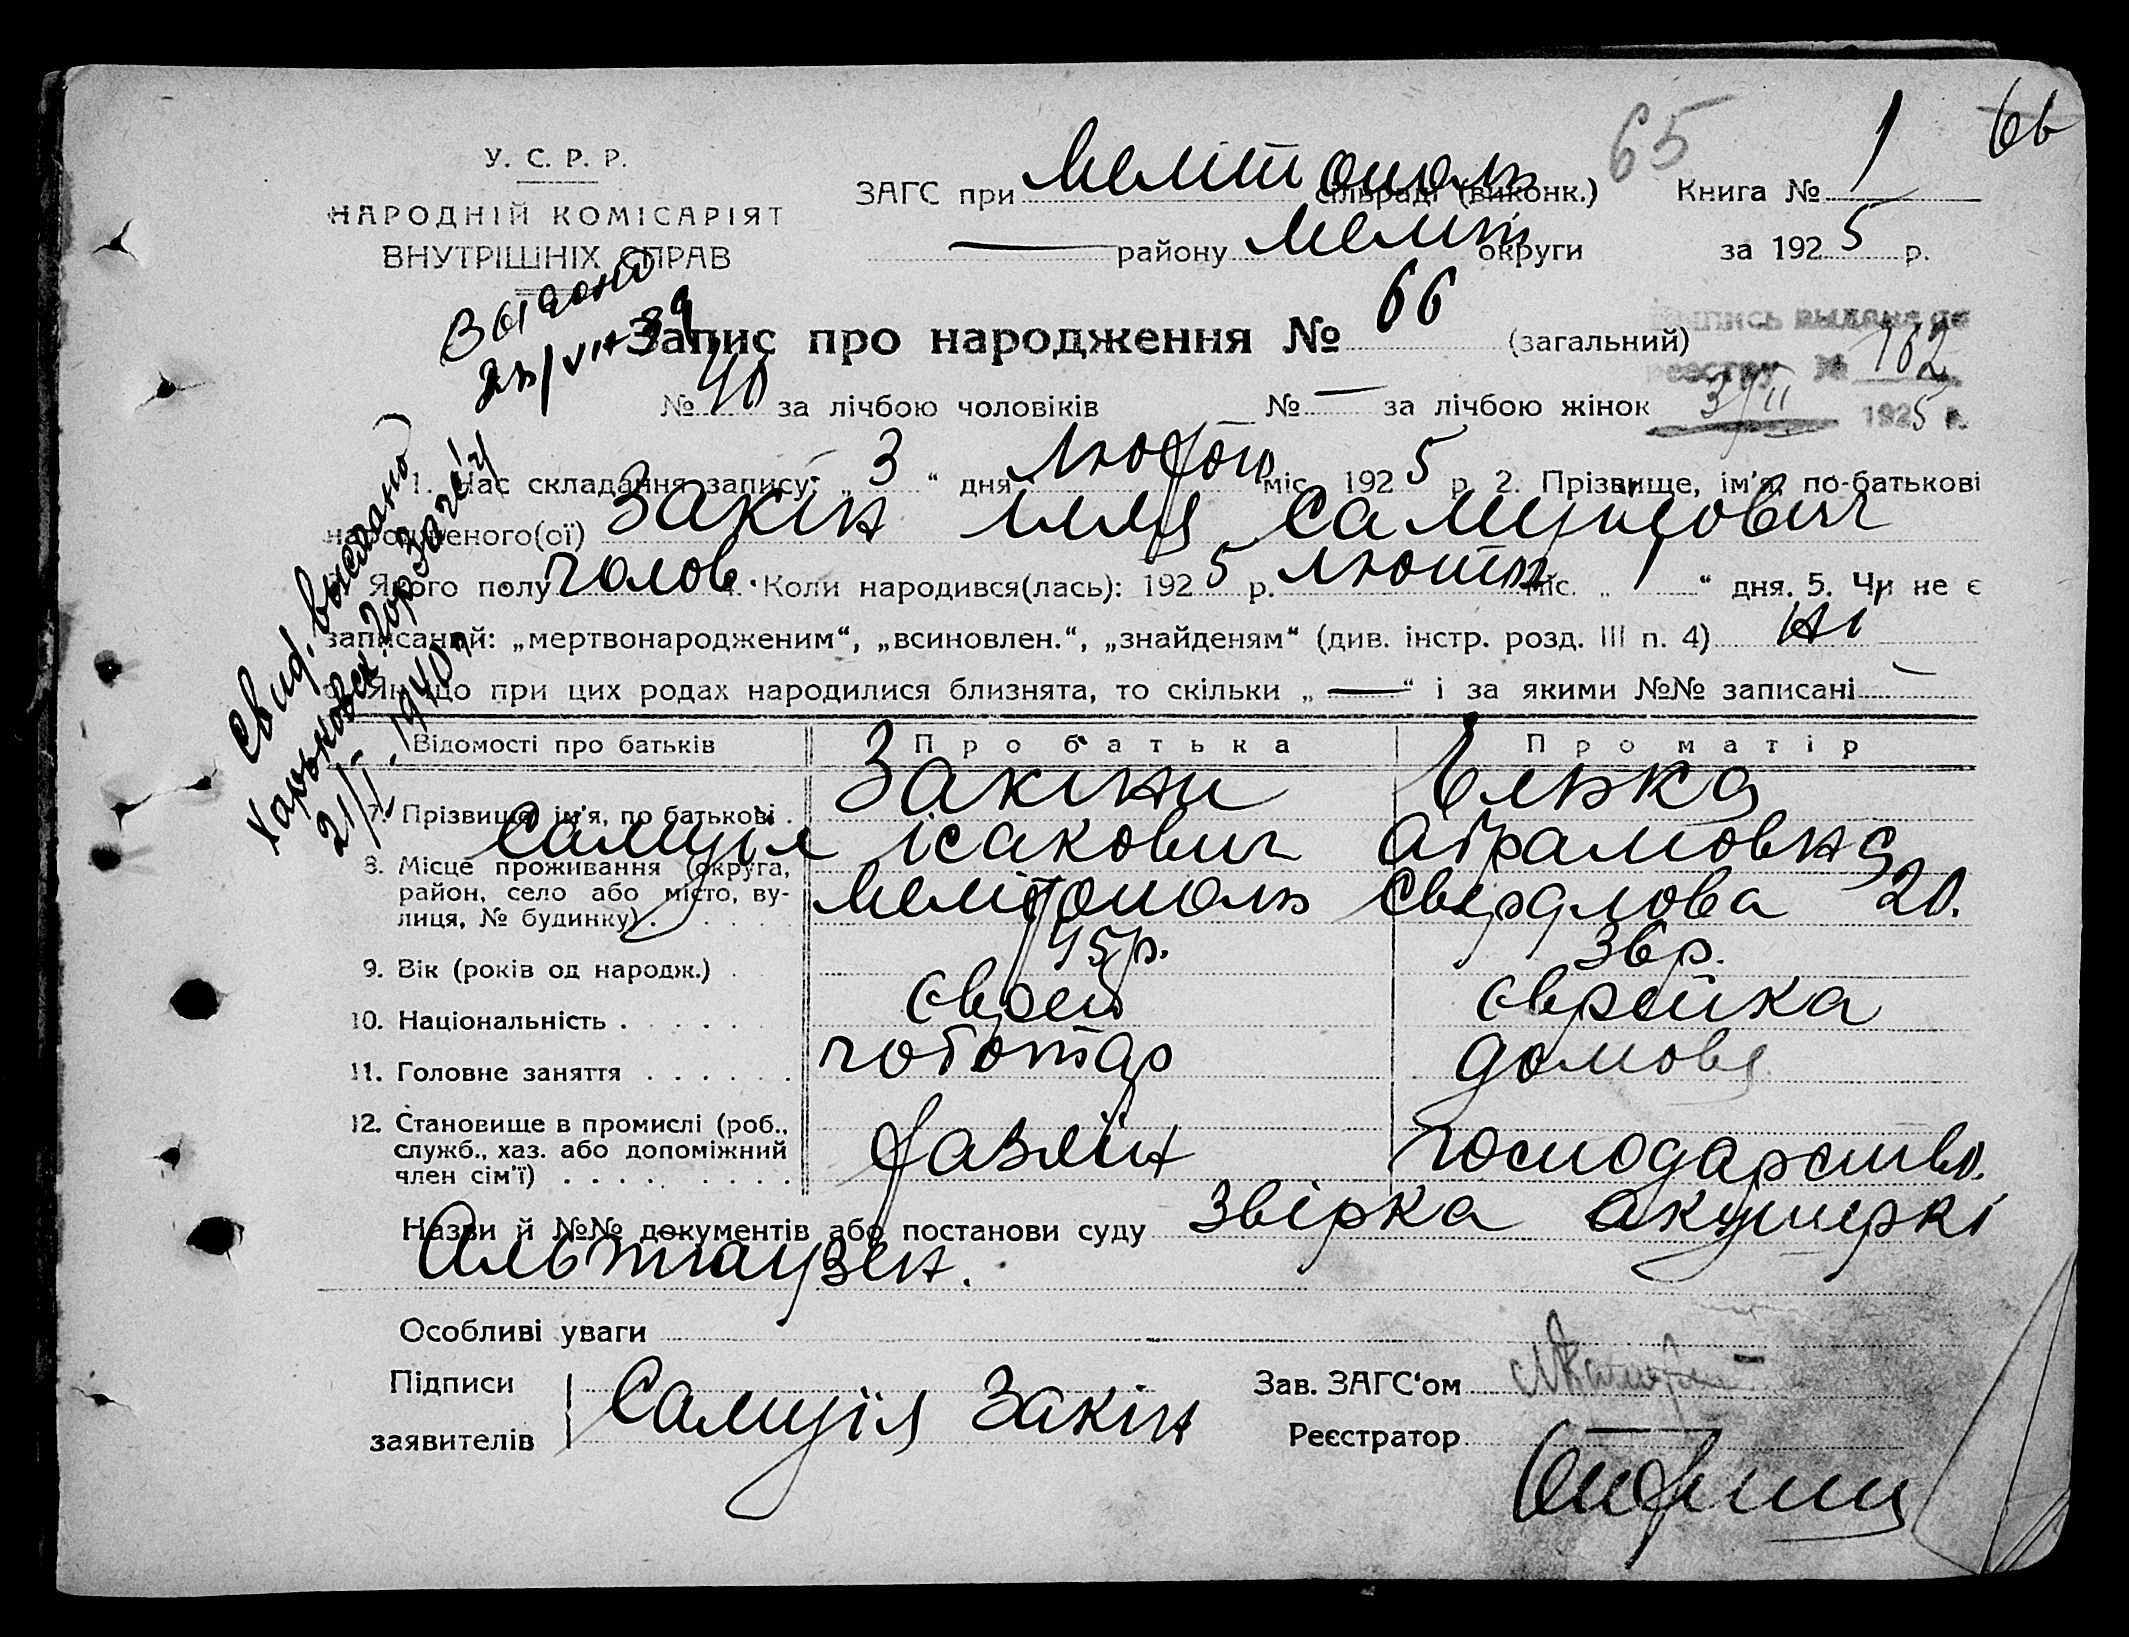 65
66
У. С. Р. Р.
НАРОДНІЙ КОМІСАРІЯТ
ВНУТРІШНІХ СПРАВ
ЗАГС при Мелітополь сільраді (виконк.) Книга № 1
— району Меліт округи за 1925 р.
Видано
Запис про народження № 66 (загальний)
Запись выдана по
реестру № 162
3/II 1925 г.
№ 40 за лічбою чоловіків № — за лічбою жінок
1. Час складання запису: „ 3 “ дня Лютого міс. 1925 р. 2. Прізвище, ім'я, по-батькові
народженого(ої) Закін Ілля Самуілович
Якого полу голов. 4. Коли народився(лась): 1925 р. Лютня міс. „ 1 “ дня. 5. Чи не є
записаний: „мертвонародженим“, „всиновлен.“, „знайденям“ (див. інстр. розд. III п. 4) Ні
6. Якщо при цих родах народилися близнята, то скільки „ — “ і за якими №№ записані —
Свид. выслано
Харьковск. Гор Загсу
21/I 1940
Відомості про батьків Про батька Про матір
7. Прізвище, ім'я, по батькові . Закіни Елька
Самуіл Ісакович Абрамовна
8. Місце проживання (округа,
район, село або місто, ву-
лиця, № будинку) . Мелітополь Свердлова 20.
9. Вік (років од народж.) . 45 р. 36 р.
10. Національність . Єврей Єврейка
11. Головне заняття . чоботар домове
12. Становище в промислі (роб.,
служб., хаз. або допоміжний
член сім'ї) . хазяїн господарство.
Назви й №№ документів або постанови суду Звірка акушеркі
Альтгаузен.
Особливі уваги
Підписи
заявителів Самуіл Закін
Зав. ЗАГС'ом
Реєстратор